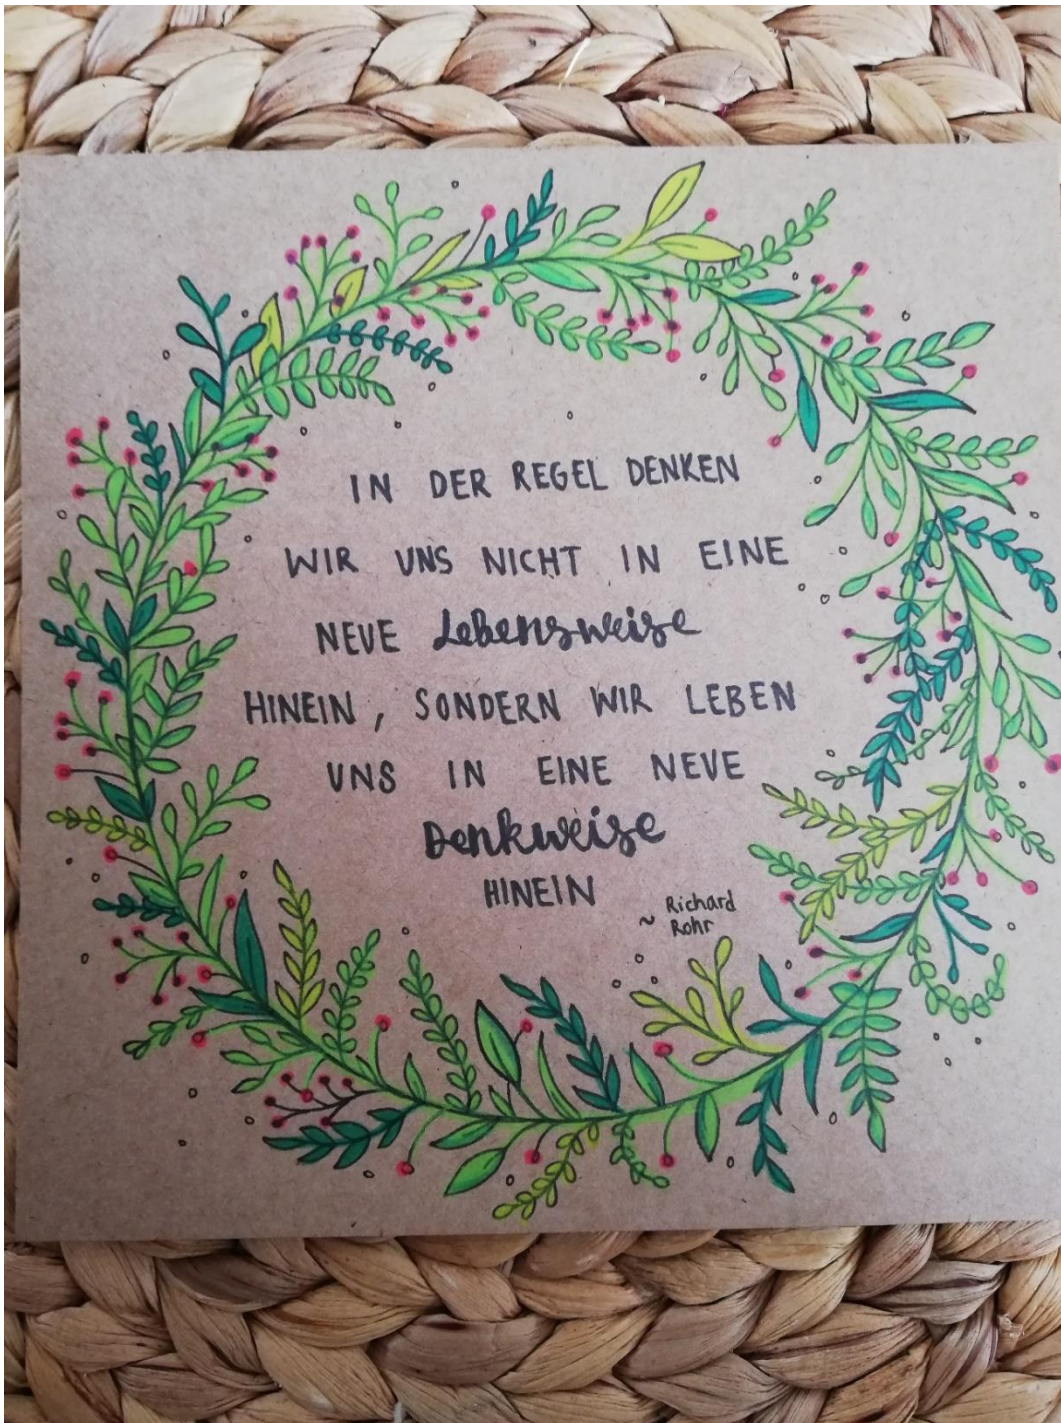 IN DER REGEL DENKEN
WIR UNS NICHT IN EINE
NEUE Lebensweise
HINEIN, SONDERN WIR LEBEN
UNS IN EINE NEUE
Denkweise
HINEIN
~ Richard
Rohr